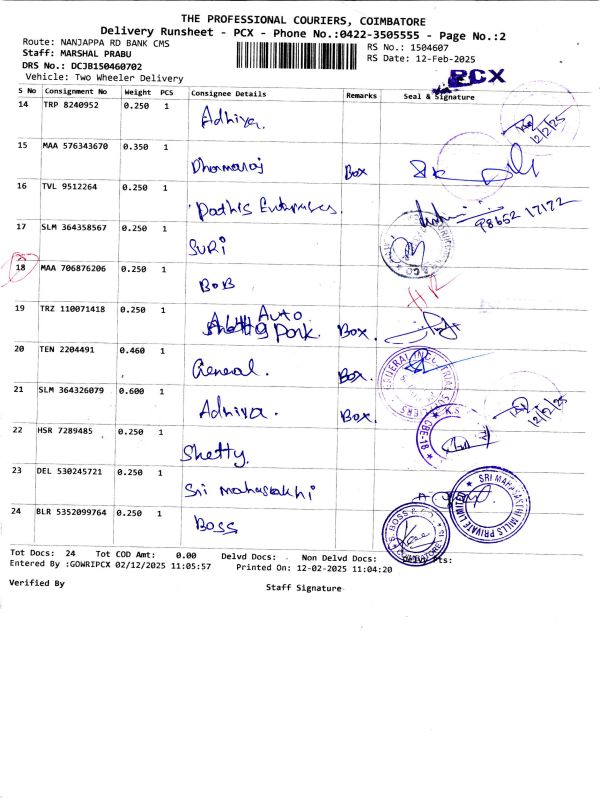 THE PROFESSIONAL COURIERS, COIMBATORE
Delivery Runsheet - PCX - Phone No.:0422-3505555 - Page No.:2
Route: NANJAPPA RD BANK CMS
RS No.: 1504607
Staff: MARSHAL PRABU
RS Date: 12-Feb-2025
DRS No.: DCJB150460702
PCX
Vehicle: Two Wheeler Delivery
S No Consignment No Weight PCS Consignee Details Remarks Seal & Signature
14 TRP 8240952 0.250 1 Adhiya. 12/2/25
15 MAA 576343670 0.350 1 Dharmaraj Box
16 TVL 9512264 0.250 1 Dadhis Enterprises. 98652 17172
17 SLM 364358567 0.250 1 SURI
18 MAA 706876206 0.250 1 BOB
19 TRZ 110071418 0.250 1 Auto Park. Box.
20 TEN 2204491 0.460 1 General. Box.
21 SLM 364326079 0.600 1 Adhiya. Box. 12/2/25
22 HSR 7289485 0.250 1 Shetty.
23 DEL 530245721 0.250 1 Sri mahasakhi
SRI MAHASAKTHI MILLS PRIVATE LIMITED
24 BLR 5352099764 0.250 1 BOSS
BOSS & CO
Tot Docs: 24 Tot COD Amt: 0.00 Delvd Docs: Non Delvd Docs: Delvd Pts:
Entered By :GOWRIPCX 02/12/2025 11:05:57 Printed On: 12-02-2025 11:04:20
Verified By
Staff Signature